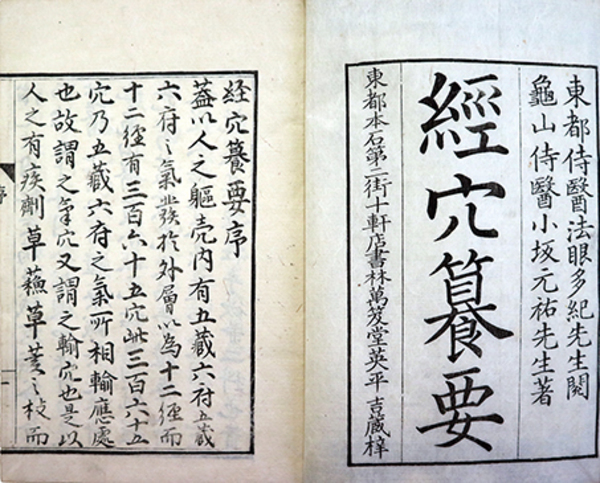 東都侍醫法眼多紀先生閱
龜山侍醫小坂元祐先生著
經穴籑要
東都本石第二街十軒店書林萬笈堂英平吉藏梓
經穴籑要序
蓋以人之軀壳内有五藏六府五藏
六府之氣發於外層以為十二經而
十二經有三百六十五穴此三百六十五
穴乃五藏六府之氣所相輸應處
也故謂之氣穴又謂之輸穴也是以
人之有疾劑草蘓草荄之枝而
序
一